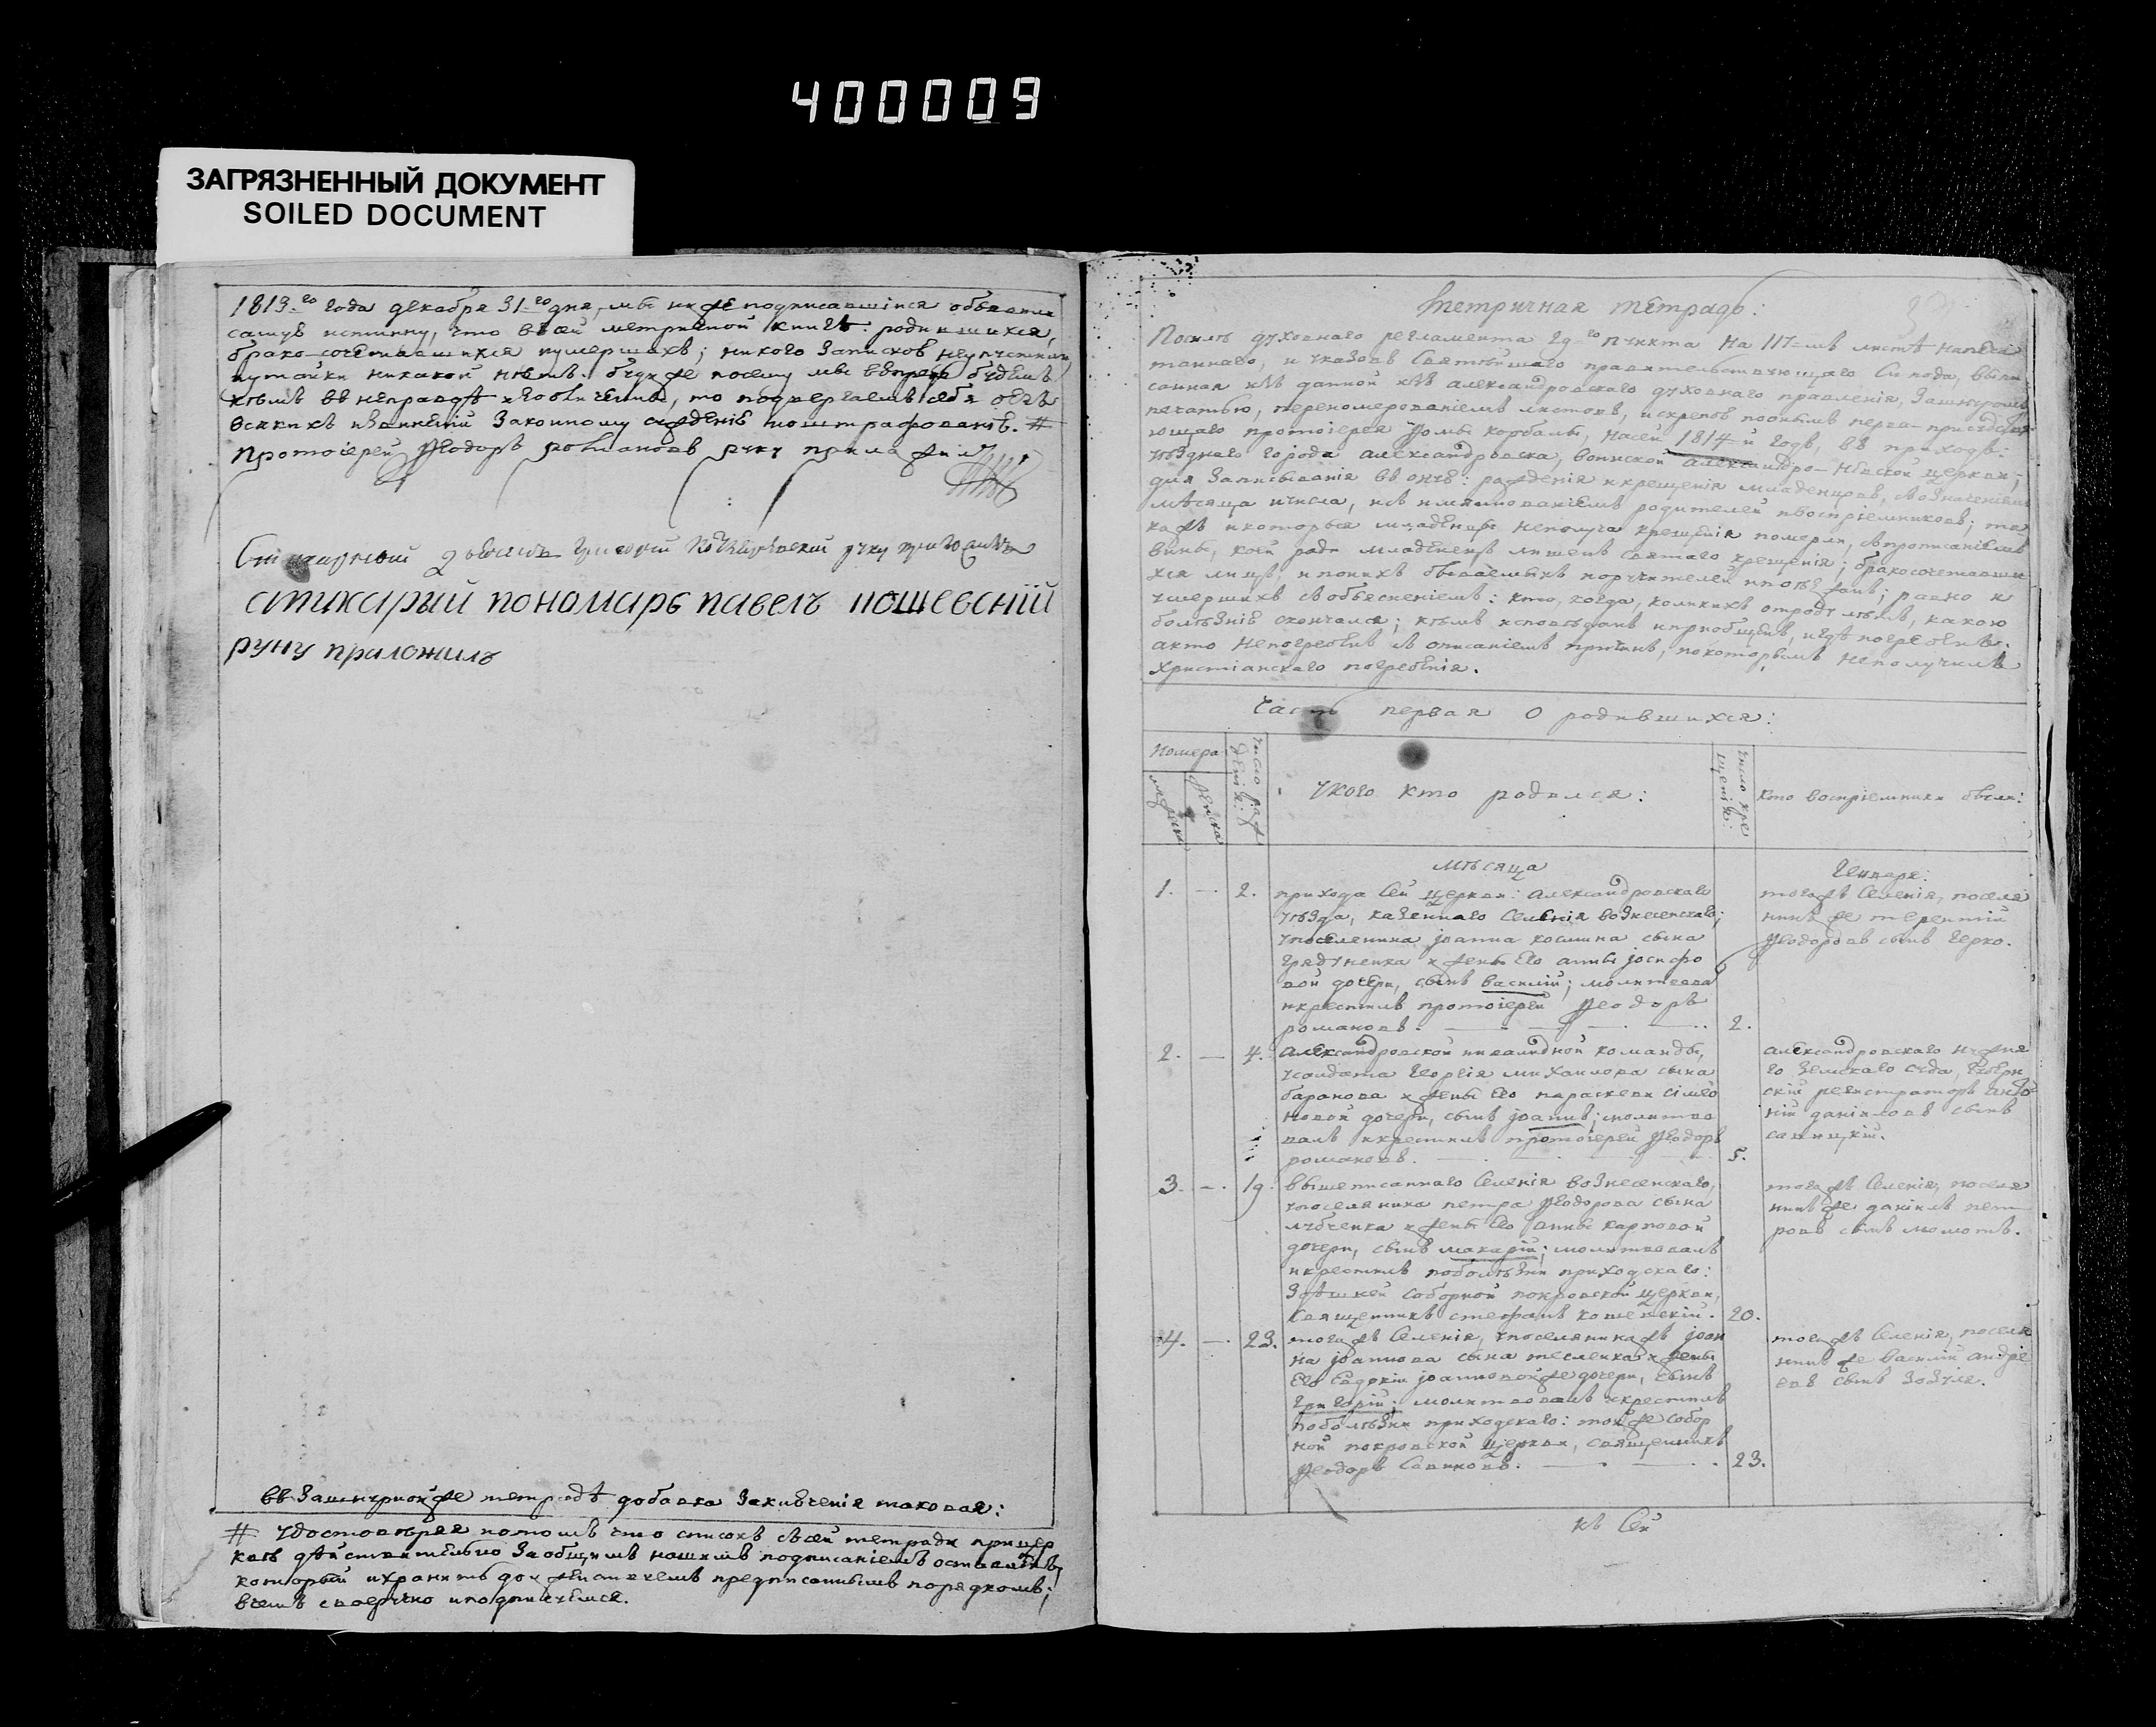 400009
ЗАГРЯЗНЕННЫЙ ДОКУМЕНТ
SOILED DOCUMENT
1813-го года декабря 31-го дня, мы нижеподписавшіися объявили
самую истинну, что въ сей метричной книгѣ родившихся,
брако-сочетавшихся иумершихъ; никого Запискою неупустили
иутайки никакой нѣтъ. буди же посему мы впредь будемъ
кѣмъ въ неправдѣ изобличены, то подвергаемъ себя безъ
всякихъ извиненій Законному сужденію иоштрафованію. #
Протоіерей Ѳеодоръ романовъ руку приложилъ
Стихарный дьячокъ Григорій руку приложилъ
стихарый пономарь павелъ кошевскій
руку приложилъ
въ Зашнурной же тетрадѣ добавка Заключенія таковая:
# удостовѣряя потомъ что списокъ съ сей тетради прицер
квѣ дѣйствительно Заобщимъ нашимъ подписаніемъ оставленъ,
который ихранить должни станемъ предписаннымъ порядкомъ;
вчемъ своеручно иподписуемся.
Метричная тетрадь:
Посилѣ духовнаго регламента 29-го пункта на 117-мъ листѣ напеча
таннаго, и указовъ Святѣйшаго правительствующаго Синода, выпи
санная изъ данной изъ александровскаго духовнаго правленія, Зашнуромъ
печатью, переномерованіемъ листовъ, искрепою поонымъ перво-присудству
ющаго протоіерея Ѳомы корбалы, насей 1814-й годъ, въ приходъ:
уѣзднаго города александровска, воинской александро-Невской церкви;
для Записыванія въ онъ: рожденія икрещенія младенцовъ, съозначеніемъ
мѣсяца ичисла, исъ имянованіемъ родителей ивоспріемниковъ; та
кожъ икоторыя младенцы неполуча крещенія померли, съпрописаніемъ
вины, коей ради младенецъ лишенъ святаго крещенія; бракосочетавши
хся лицъ, ипонихъ бываемыхъ поручителей ипоѣзжанъ; равно и
умершихъ собъясненіемъ: кто, когда, коликихъ отроду лѣтъ, какою
болѣзнію скончался; кѣмъ исповѣданъ иприобщенъ, игдѣ погребенъ.
акто непогребенъ съ описаніемъ причинъ, покоторымъ неполучилъ
Христіанскаго погребенія.
Часть первая О родившихся:
Номера
мужеска
женска
число рож
денія:
Укого кто родился:
число кре
щенія:
Кто воспріемники были:
мѣсяца
Генваря:
1. — 2. прихода Сей церкви: Александровскаго
уѣзда, казеннаго Селенія вознесенскаго;
упоселянина іоанна космина сына
гредуненка и жены его анны іосифо
вой дочери, сынъ василій; молитвова
икрестилъ протоіерей Ѳеодоръ
романовъ. 2.
тогожъ Селенія, поселя
нинъ же терентій
Ѳеодоровъ сынъ Герко.
2. — 4. Александровской инвалидной команды,
усолдата Георгія михаилова сына
баранова и жены его параскеви сімео
новой дочери, сынъ іоаннъ; молитво
валъ икрестилъ протоіерей Ѳеодоръ
романовъ. 5.
александровскаго нижня
го Земскаго суда, губерн
скій регистраторъ
даніиловъ сынъ
савицкій.
3. — 19. вышеписаннаго Селенія вознесенскаго,
упоселянина петра Ѳеодорова сына
лубченка и жены его анны карповой
дочери, сынъ макарій; молитвовалъ
икрестилъ поболѣзни приходскаго:
Здѣшней соборной покровской церкви,
Священникъ стефанъ кошевскій. 20.
тогожъ Селенія, поселя
нинъ же даніилъ пет
ровъ сынъ момотъ.
4. — 23. тогожъ Селенія, упоселянинажъ іоан
на іоаннова сына тесленка и жены
его Евдокіи іоанновой же дочери, сынъ
Григорій; молитвовалъ икрестилъ
поболѣзни приходскаго: той же собор
ной покровской церкви, священникъ
Ѳеодоръ Савиновъ. 23.
тогожъ Селенія, поселя
нинъ же василій андре
евъ сынъ Зозуля.
къ Сей